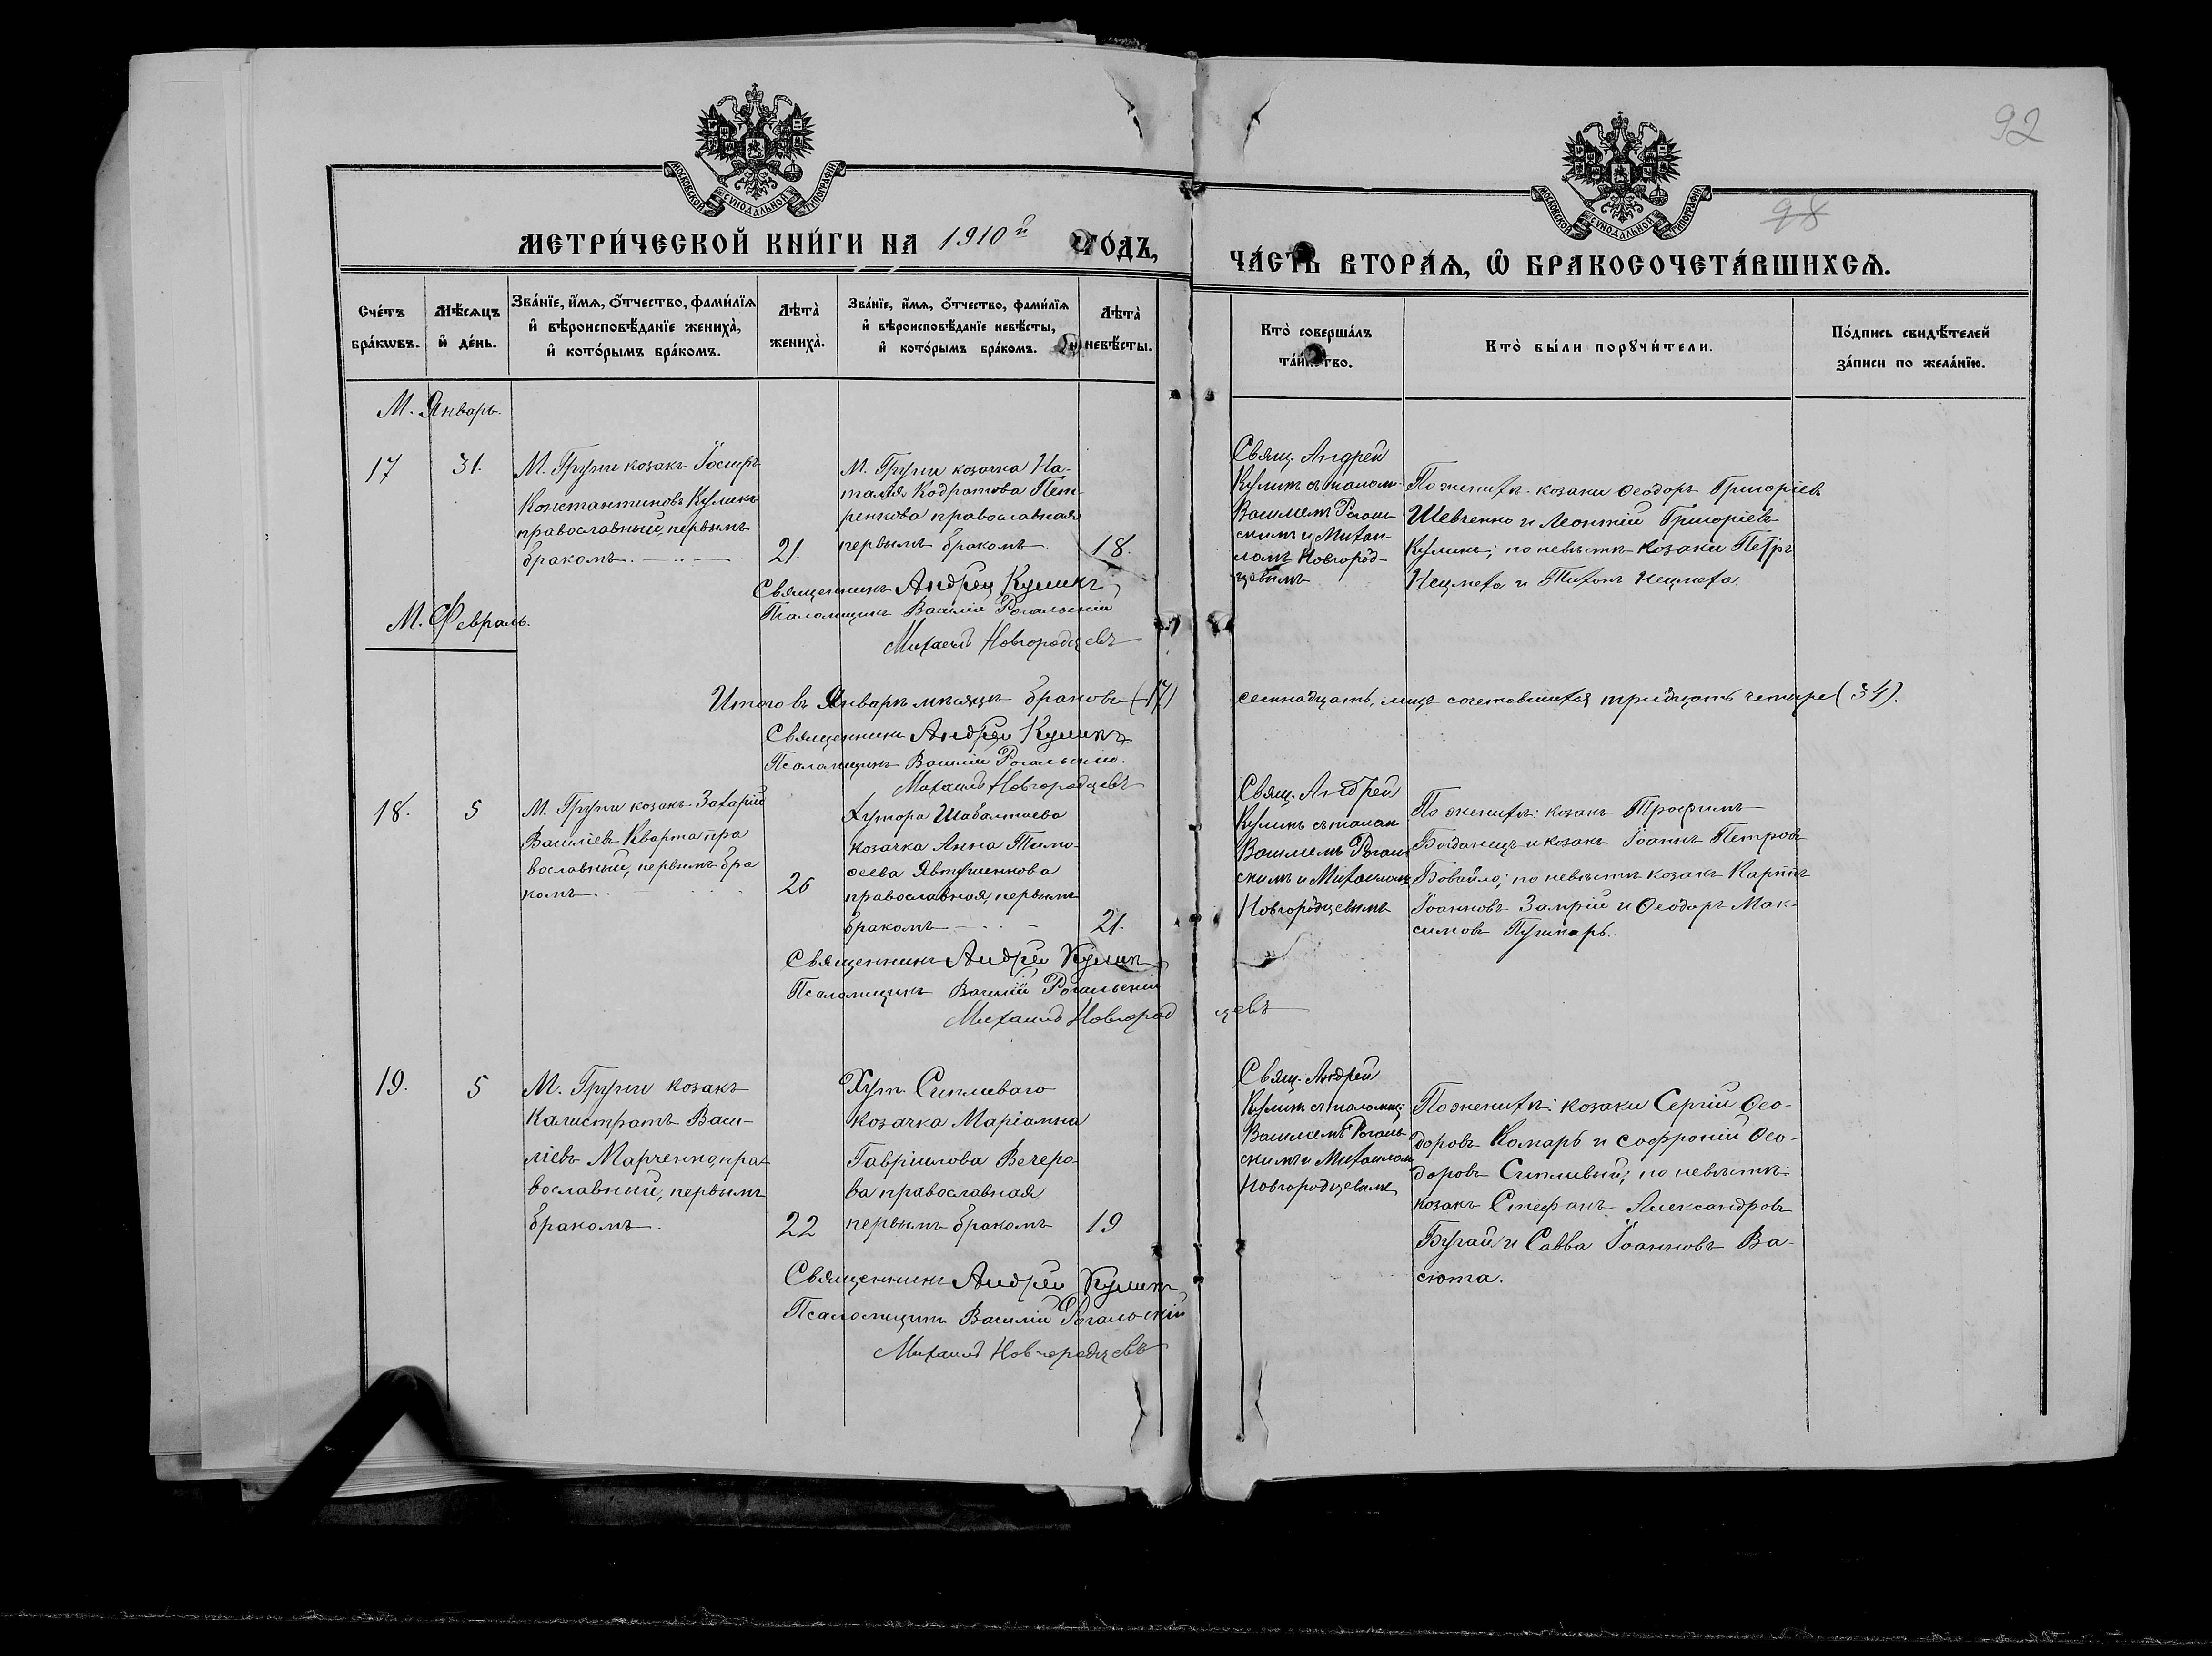 92
98
МОСКОВСКОЙ СѴНОДАЛЬНОЙ ТИПОГРАФІИ
МОСКОВСКОЙ СѴНОДАЛЬНОЙ ТИПОГРАФІИ
МЕТРИ́ЧЕСКОЙ КНИ́ГИ НА 1910й ГО́ДЪ,
ЧА́СТЬ ВТОРА́Ѧ, Ѿ БРАКОСОЧЕТА́ВШИХСѦ.
Сче́тъ
бра́кѡвъ.
Мѣ́сѧцъ
и҆ де́нь.
Зва́нїе, и҆́мѧ, о҆́тчество, фами́лїѧ
и҆ вѣроисповѣ́данїе жениха̀,
и҆ кото́рымъ бра́комъ.
Лѣта̀
жениха̀.
Зва́нїе, и҆́мѧ, о҆́тчество, фами́лїѧ
и҆ вѣроисповѣ́данїе невѣ́сты,
и҆ кото́рымъ бра́комъ.
Лѣта̀
невѣ́сты.
Кто̀ соверша́лъ
та́инство.
Кто̀ бы́ли порꙋчи́тели.
По́дпись свидѣ́телей
за́писи по жела́нїю.
М. Январь.
17
31.
М. Груни козакъ Іосифъ
Константиновъ Куликъ
православный, первымъ
бракомъ.
21.
М. Груни козачка На-
талія Кодратова Пет-
ренкова православная
первымъ бракомъ.
18.
Свящ. Андрей
Куликъ съ псалом.
Василіемъ Рогаль-
скимъ и Михаи-
ломъ Новгород-
цевымъ
По женихѣ: козаки Ѳеодоръ Григоріевъ
Шевченко и Леонтій Григоріевъ
Куликъ; по невѣстѣ козаки Петръ
Нецмеха и Тихонъ Нецмеха.
Священникъ Андрей Куликъ
Псаломщикъ Василій Рогальскій
Михаилъ Новгородцевъ
М. Февраль.
Итого въ Январѣ мѣсяцѣ браковъ (17)
семнадцать, лицъ сочетавшихся тридцать четыре (34).
Священникъ Андрей Куликъ
Псаломщикъ Василій Рогальскій.
Михаилъ Новгородцевъ
18.
5
М. Груни козакъ Захарій
Василіевъ Кварта пра
вославный, первымъ бра
комъ.
26
Хутора Шабалтаева
козачка Анна Тимо-
ѳеева Явтушенкова
православная, первымъ
бракомъ
21.
Свящ. Андрей
Куликъ съ псалом
Василіемъ Рогаль
скимъ и Михаиломъ
Новгородцевымъ
По женихѣ: козакъ Трофимъ
Богданецъ и козакъ Іоаннъ Петровъ
Бовайло; по невѣстѣ козакъ Карпъ
Іоанновъ Замрій и Ѳеодоръ Мак-
симовъ Пушкарь.
Священникъ Андрей Куликъ
Псаломщикъ Василій Рогальскій
Михаилъ Новгородцевъ
19.
5
М. Груни козакъ
Калистратъ Васи-
ліевъ Марченко, пра-
вославный, первымъ
бракомъ.
22
Хут. Сипливаго
козачка Маріамна
Гавріилова Вечеро-
ва православная
первымъ бракомъ
19
Свящ. Андрей
Куликъ съ псаломщ.
Василіемъ Рогаль-
скимъ и Михаиломъ
Новгородцевымъ
По женихѣ: козаки Сергій Ѳео-
доровъ Комарь и Софроній Ѳео-
доровъ Сипливый; по невѣстѣ:
козакъ Стефанъ Александровъ
Бугай и Савва Іоанновъ Ва-
сюта.
Священникъ Андрей Куликъ
Псаломщикъ Василій Рогальскій
Михаилъ Новгородцевъ